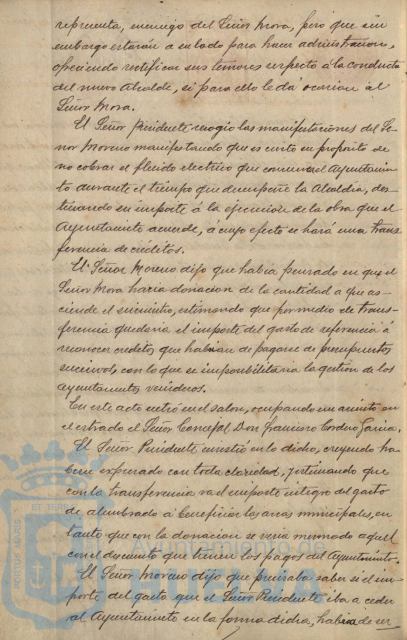 representa, enemigo del Señor Mora, pero que sin
embargo estarán a su lado para hacer administracion,
ofreciendo rectificar sus temores respecto á la conducta
del nuevo Alcalde, si para ello le dá ocasion el
Señor Mora.
El Señor Presidente recogio las manifestaciones del Se-
ñor Moreno manifestando que es cierto su proposito de
no cobrar el fluido electrico que consuma el Ayuntamien-
to durante el tiempo que desempeñe la Alcaldia, des-
tinando su importe á la ejecucion de la obra que el
Ayuntamiento acuerde, á cuyo efecto se hará una trans-
ferencia de créditos.
El Señor Moreno dijo que habia pensado en que el
Señor Mora haria donacion de la cantidad a que as-
ciende el suministro, estimando que por medio de trans-
ferencia quedaria el importe del gasto de referencia á
reconocer creditos, que habrian de pagarse de presupuestos
sucesivos, con lo que se imposibilitaria la gestion de los
ayuntamientos venideros.
En este acto entró en el salon, ocupando un asiento en
el estrado el Señor Concejal Don Francisco Cordon Garcia.
El Señor Presidente insistió en lo dicho, creyendo ha-
berse expresado con toda claridad, y estimando que
con la transferencia va el importe integro del gasto
de alumbrado á beneficiar las arcas municipales, en
tanto que con la donacion se veria mermado aquel
con el descuento que tienen los pagos del Ayuntamiento.
El Señor Moreno dijo que precisaba saber si el im-
porte del gasto que el Señor Presidente iba a ceder
al Ayuntamiento en la forma dicha, habia de en
PORTUS MAGIS